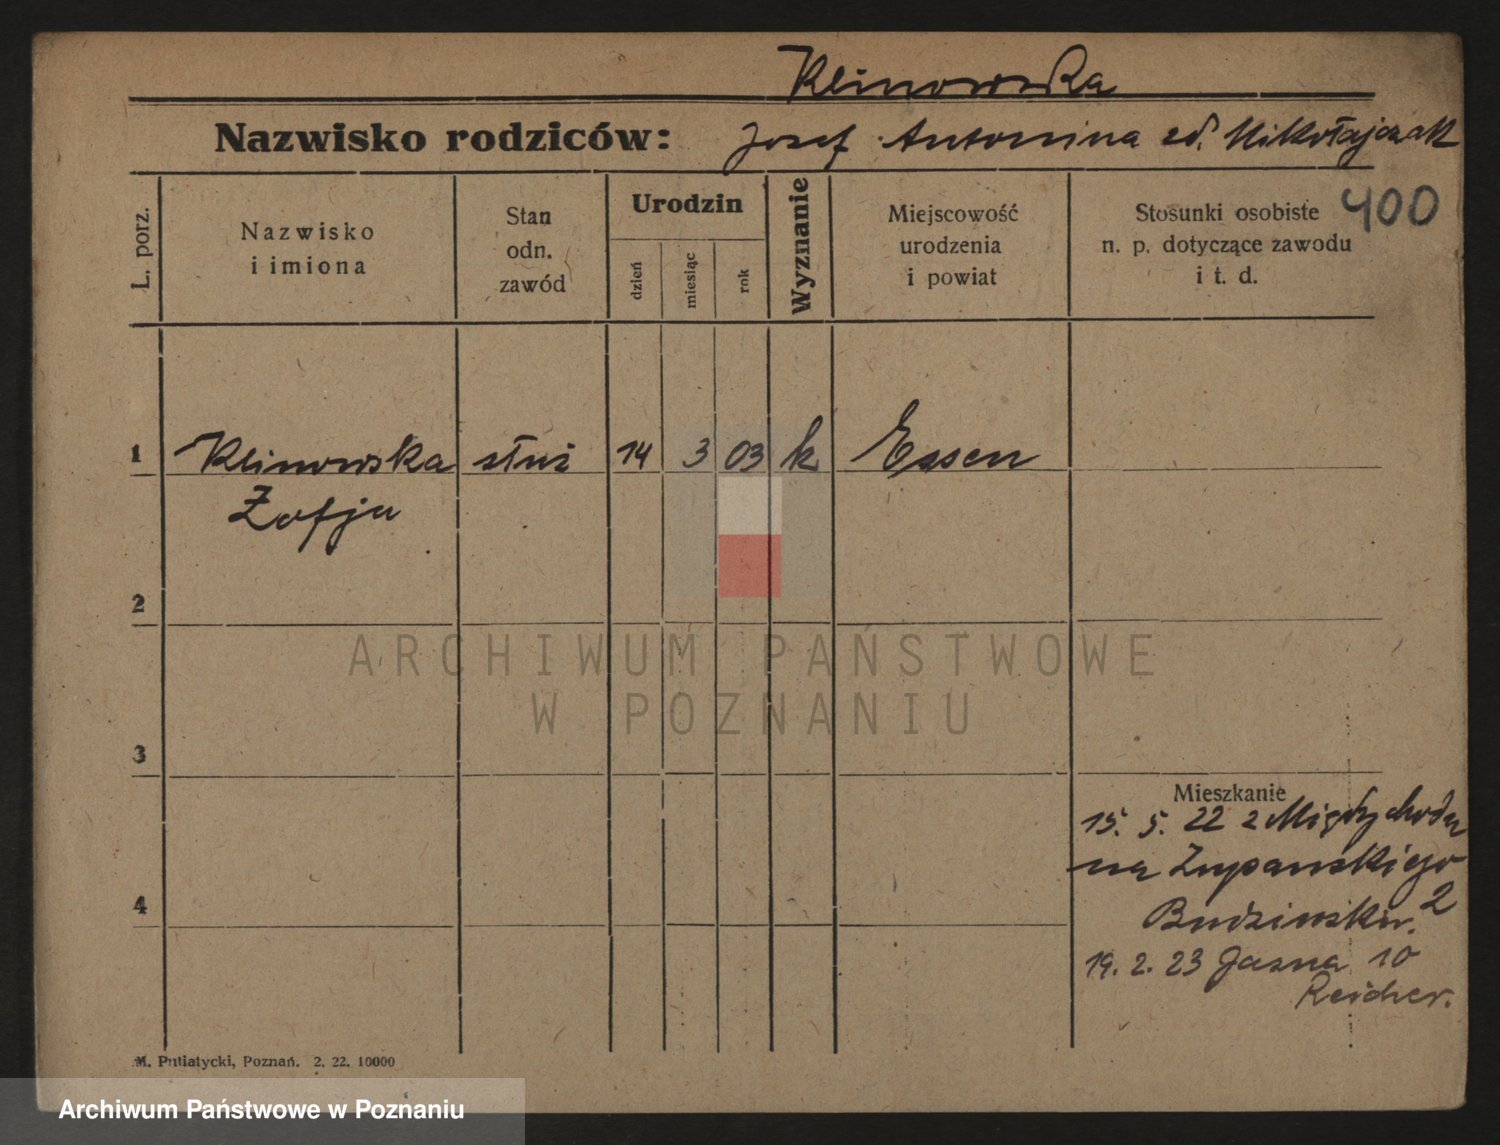 Klinowska
Nazwisko rodziców: Josef Antonina zd. Mikołajczak
400
L. porz.
Nazwisko
i imiona
Stan
odn.
zawód
Urodzin
dzień
miesiąc
rok
Wyznanie
Miejscowość
urodzenia
i powiat
Stosunki osobiste
n. p. dotyczące zawodu
i t. d.
1 Klinowska służ 14 3 03 k Essen
Zofja
2
ARCHIWUM PAŃSTWOWE
W POZNANIU
3
Mieszkanie
15. 5. 22 z Międzychodu
na Żupańskiego
2
4
19. 2. 23 Jasna 10
Reicher.
M. Putiatycki, Poznań. 2. 22. 10000
Archiwum Państwowe w Poznaniu